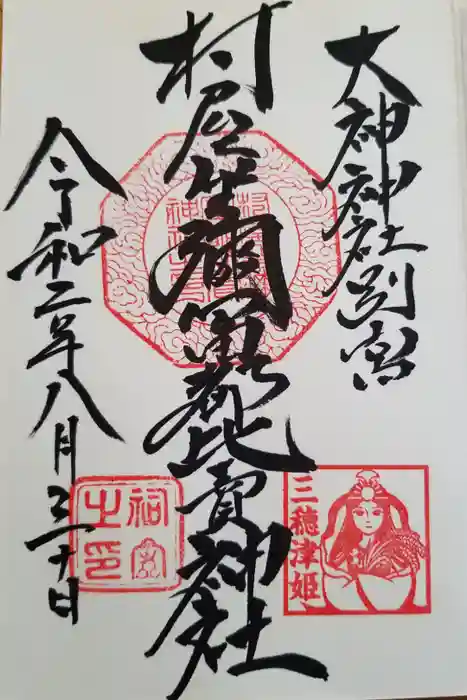 大神神社別宮
村屋坐彌冨都比賣神社
令和二年八月三十日
三穂津姫
祠官
之印